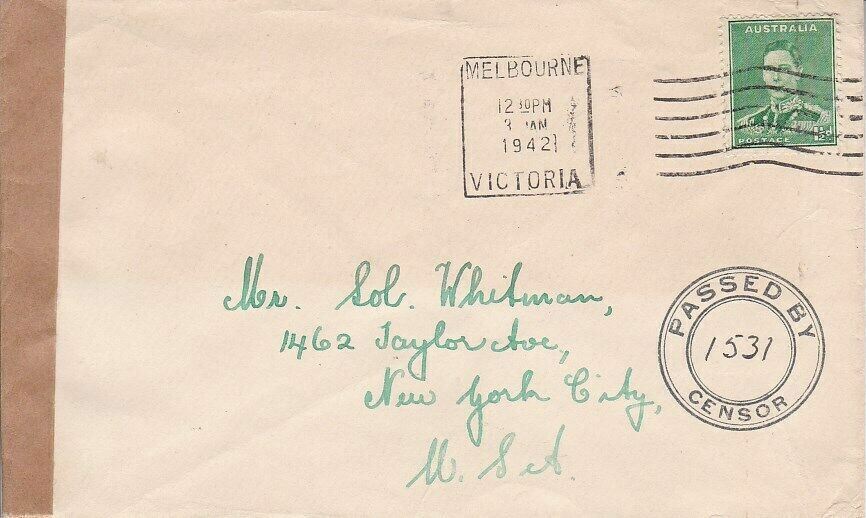 AUSTRALIA
POSTAGE
MELBOURNE
12 30PM
3 JAN
1942
VICTORIA
Mr. Sol. Whitman,
1462 Taylor Ave,
New York City,
U.S.A.
PASSED BY
1531
CENSOR